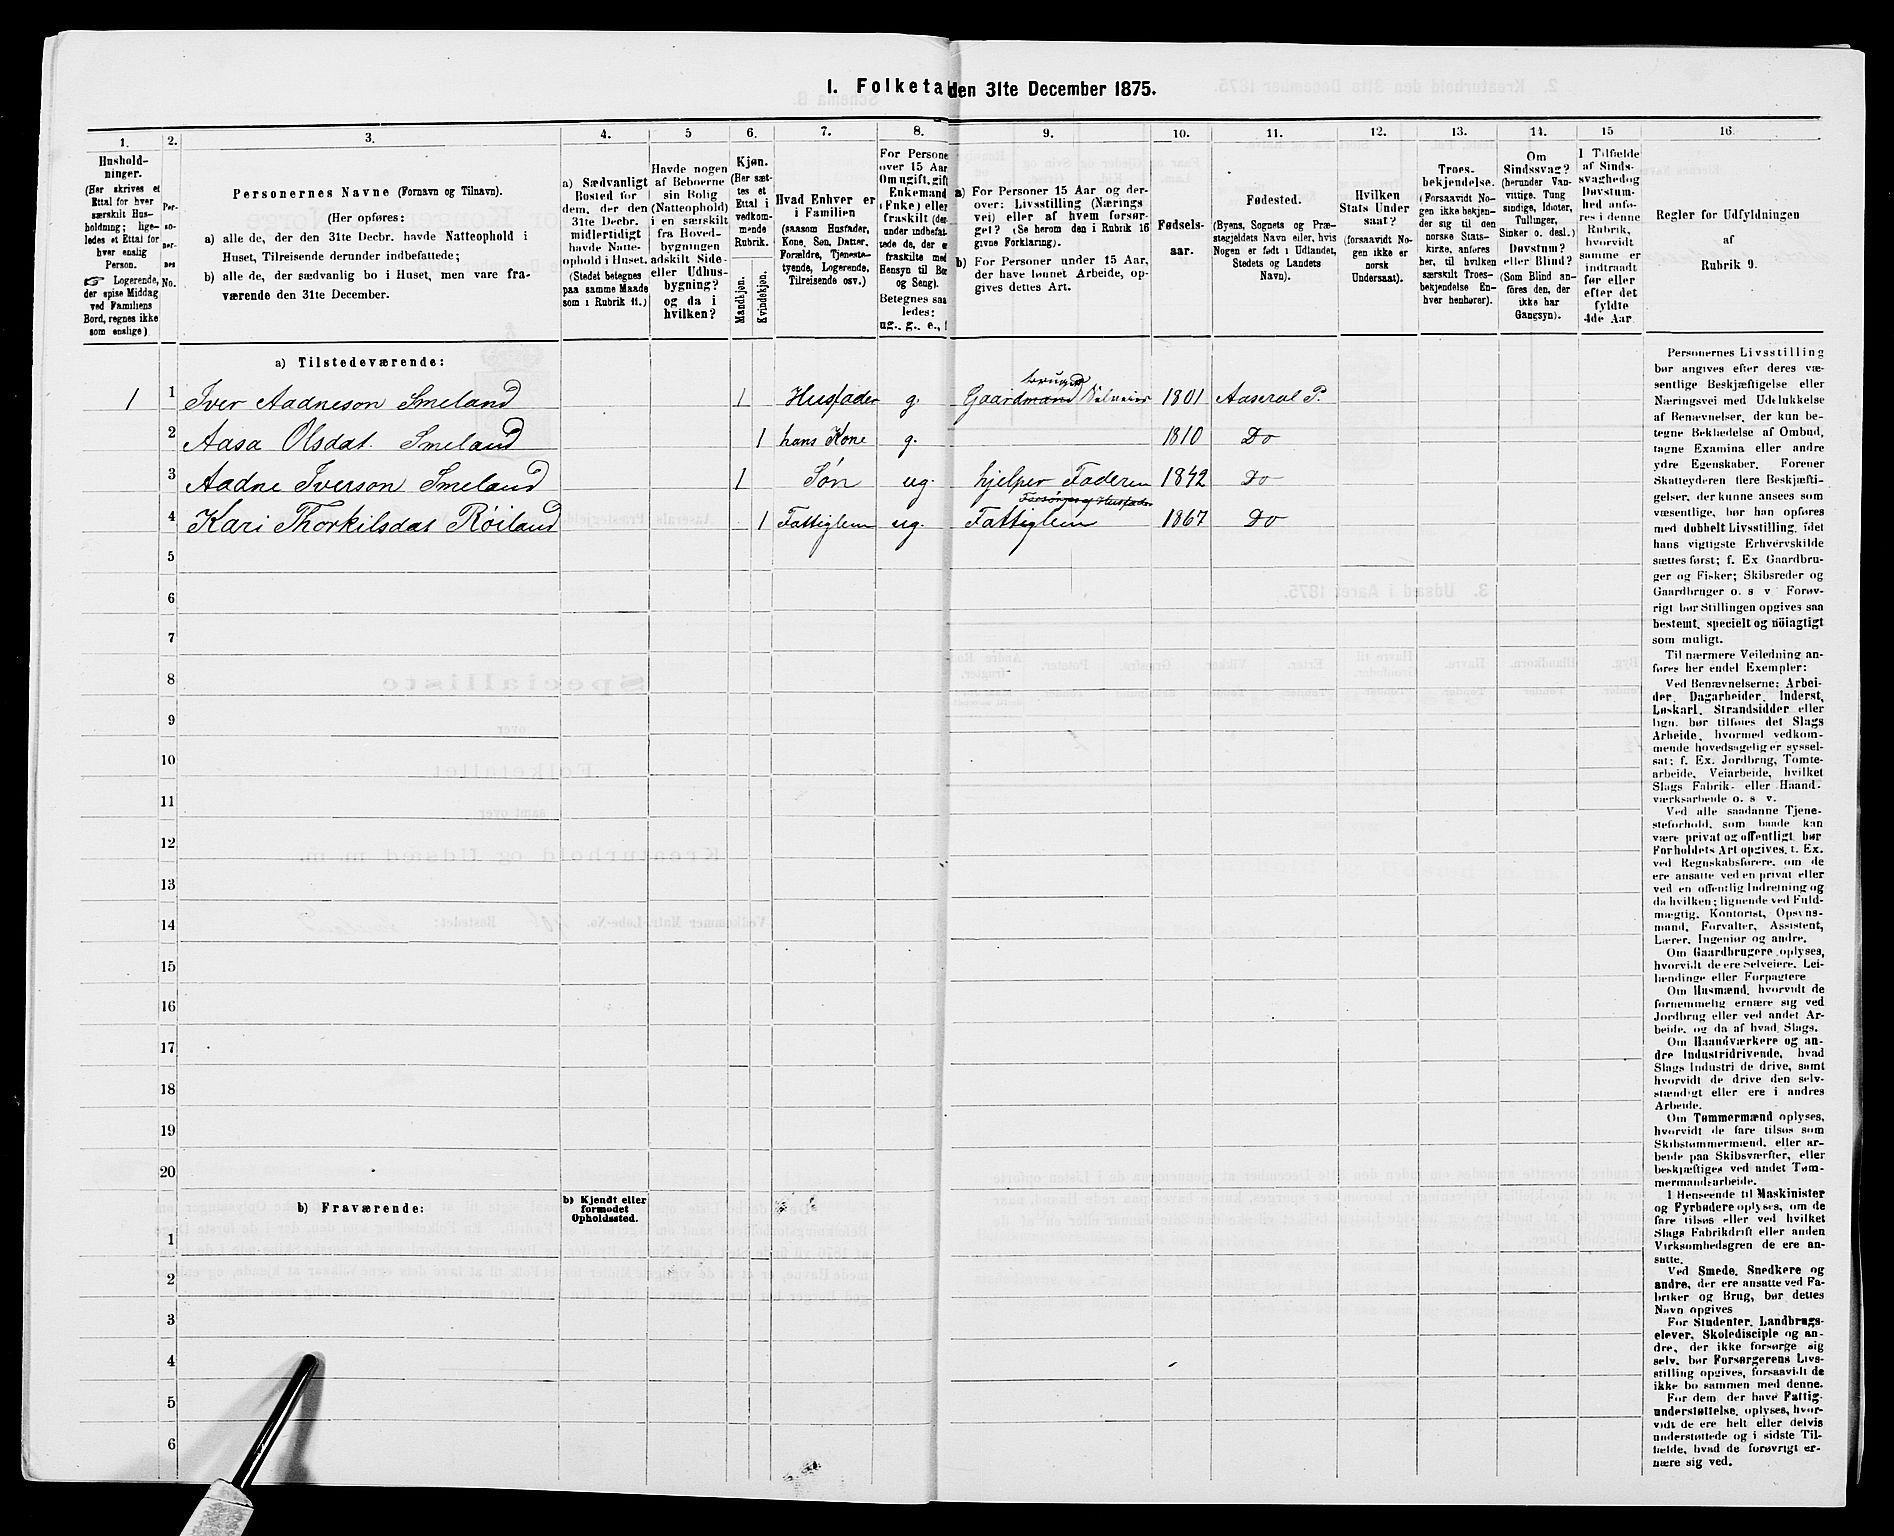 1. Folketal den 31te December 1875.
1. 2. 3. 4. 5 6. 7. 8. 9. 10. 11. 12. 13. 14. 15 16.
Hushold-
ninger.
(Her skrives et
Ettal for hver
særskilt Hus-
holdning; lige-
ledes et Ettal for
hver enslig
Person.
☞ Logerende,
der spise Middag
ved Familiens
Bord, regnes ikke
som enslige)
Per-
so-
ner-
nes
No.
Personernes Navne (Fornavn og Tilnavn).
(Her opføres:
a) alle de, der den 31te Decbr. havde Natteophold i
Huset, Tilreisende derunder indbefattede;
b) alle de, der sædvanlig bo i Huset, men vare fra-
værende den 31te December.
a) Sædvanligt
Bosted for
dem, der den
31te Decbr.
midlertidigt
havde Natte-
ophold i Huset.
(Stedet betegnes
paa samme Maade
som i Rubrik 11.)
Havde nogen
af Beboerne
sin Bolig
(Natteophold)
i en særskilt
fra Hoved-
bygningen
adskilt Side-
eller Udhus-
bygning?
og da i
hvilken?
Kjøn.
(Her sæt-
tes et
Ettal i
vedkom-
mende
Rubrik.
Mandkjøn.
Kvindekjøn.
Hvad Enhver er
i Familien
(saasom Husfader,
Kone, Søn, Datter,
Forældre, Tjeneste-
tyende, Logerende,
Tilreisende osv.)
For Persone
over 15 Aar
Om ugift, gift
Enkemand
(Enke) eller
fraskilt (der-
under indbefat-
tede de, der e
fraskilte med
Hensyn til Bo
og Seng).
Betegnes saa
ledes:
ug., g., e., f
a) For Personer 15 Aar og der-
over: Livsstilling (Nærings
vei) eller af hvem forsør-
get? (Se herom den i Rubrik 16
givne Forklaring).
b) For Personer under 15 Aar,
der have lønnet Arbeide, op-
gives dettes Art.
Fødsels-
aar.
Fødested.
(Byens, Sognets og Præ-
stegjeldets Navn eller, hvis
Nogen er født i Udlandet,
Stedets og Landets
Navn).
Hvilken
Stats Under
saat?
(forsaavidt No-
gen ikke er
norsk
Undersaat).
Troes-
bekjendelse.
(Forsaavidt No-
gen ikke bekjen-
der sig til den
norske Stats-
kirke, anføres
her, til hvilken
særskilt Troes-
bekjendelse En-
hver henhører).
Om
Sindssvag?
(herunder Van-
vittige, Tung
sindige, Idioter,
Tullinger,
Sinker o. desl.)
Døvstum?
eller Blind?
(Som Blind an-
føres den, der
ikke har
Gangsyn).
I Tilfælde
af Sinds-
svaghed og
Døvstum-
hed anfø-
res i denne
Rubrik,
hvorvidt
samme er
indtraadt
før eller
efter det
fyldte
4de Aar
Regler for Udfyldningen
af
Rubrik 9.
a) Tilstedeværende:
1 1 Iver Aadneson Smeland 1 Husfader g. Gaardmand bruger Selveier 1801 Aaseral P.
2 Aasa Olsdat. Smeland 1 hans Kone g. 1810 Do
3 Aadne Iverson Smeland 1 Søn ug. hjelper Faderen 1842 Do
Forsørges af Husfader
4 Kari Thorkilsdat Røiland 1 Fattiglem ug. Fattiglem 1867 Do
5
6
7
8
9
10
11
12
13
14
15
16
17
18
19
20
b) Fraværende:
b) Kjendt eller
formodet
Opholdssted.
1
2
3
4
5
6
Personernes Livsstilling
bør angives efter deres væ-
sentlige Beskjæftigelse eller
Næringsvei med Udelukkelse
af Benævnelser, der kun be-
tegne Beklædelse af Ombud,
tagne Examina eller andre
ydre Egenskaber. Forener
Skatteyderen flere Beskjæfti-
gelser, der kunne ansees som
væsentlige, bør han opføres
med dobbelt Livsstilling, idet
hans vigtigste Erhvervskilde
sættes først; f. Ex Gaardbru-
ger og Fisker; Skibsreder og
Gaardbruger o. s v Forøv-
rigt bør Stillingen opgives saa
bestemt, specielt og nøiagtigt
som muligt.
Til nærmere Veiledning an-
føres her endel Exempler:
Ved Benævnelserne: Arbei-
der, Dagarbeider, Inderst,
Løskarl, Strandsidder eller
lign. bør tilføies det Slags
Arbeide, hvormed vedkom-
mende hovedsagelig er syssel-
sat; f. Ex. Jordbrug, Tomte-
arbeide, Veiarbeide, hvilket
Slags Fabrik- eller Haand-
værksarbeide o. s v.
Ved alle saadanne Tjene-
steforhold, som baade kan
være privat og offentligt, bør
Forholdets Art opgives, t. Ex.
ved Regnskabsførere, om de
ere ansatte ved en privat eller
ved en offentlig Indretning og
da hvilken; lignende ved Fuld-
mægtig, Kontorist, Opsyns-
mand, Forvalter, Assistent,
Lærer, Ingeniør og andre.
Om Gaardbrugere oplyses,
hvorvidt de ere Selveiere, Lei-
lændinge eller Forpagtere
Om Husmænd, hvorvidt de
fornemmelig ernære sig ved
Jordbrug eller ved andet Ar-
beide, og da af hvad Slags.
Om Haandværkere og an-
dre Industridrivende, hvad
Slags Industri de drive, samt
hvorvidt de drive den selv-
stændigt eller ere i andres
Arbeide.
Om Tømmermænd oplyses,
hvorvidt de fare tilsøs som
Skibstømmermænd, eller ar-
beide paa Skibsværfter, eller
beskjæftiges ved andet Tøm-
mermandsarbeide.
I Henseende til Maskinister
og Fyrbødere oplyses, om de
fare tilsøs eller ved hvilket
Slags Fabrikdrift eller anden
Virksomhedsgren de ere an-
satte.
Ved Smede, Snedkere og
andre, der ere ansatte ved Fa-
briker og Brug, bør dettes
Navn opgives
For Studenter, Landbrugs-
elever, Skoledisciple og an-
dre, der ikke forsørge sig
selv, bør Forsørgerens Livs-
stilling opgives, forsaavidt de
ikke bo sammen med denne.
For dem, der have Fattig-
understøttelse, oplyses, hvor-
vidt de ere helt eller delvis
understøttede og i sidste Til-
fælde, hvad de forøvrigt er-
nære sig ved.